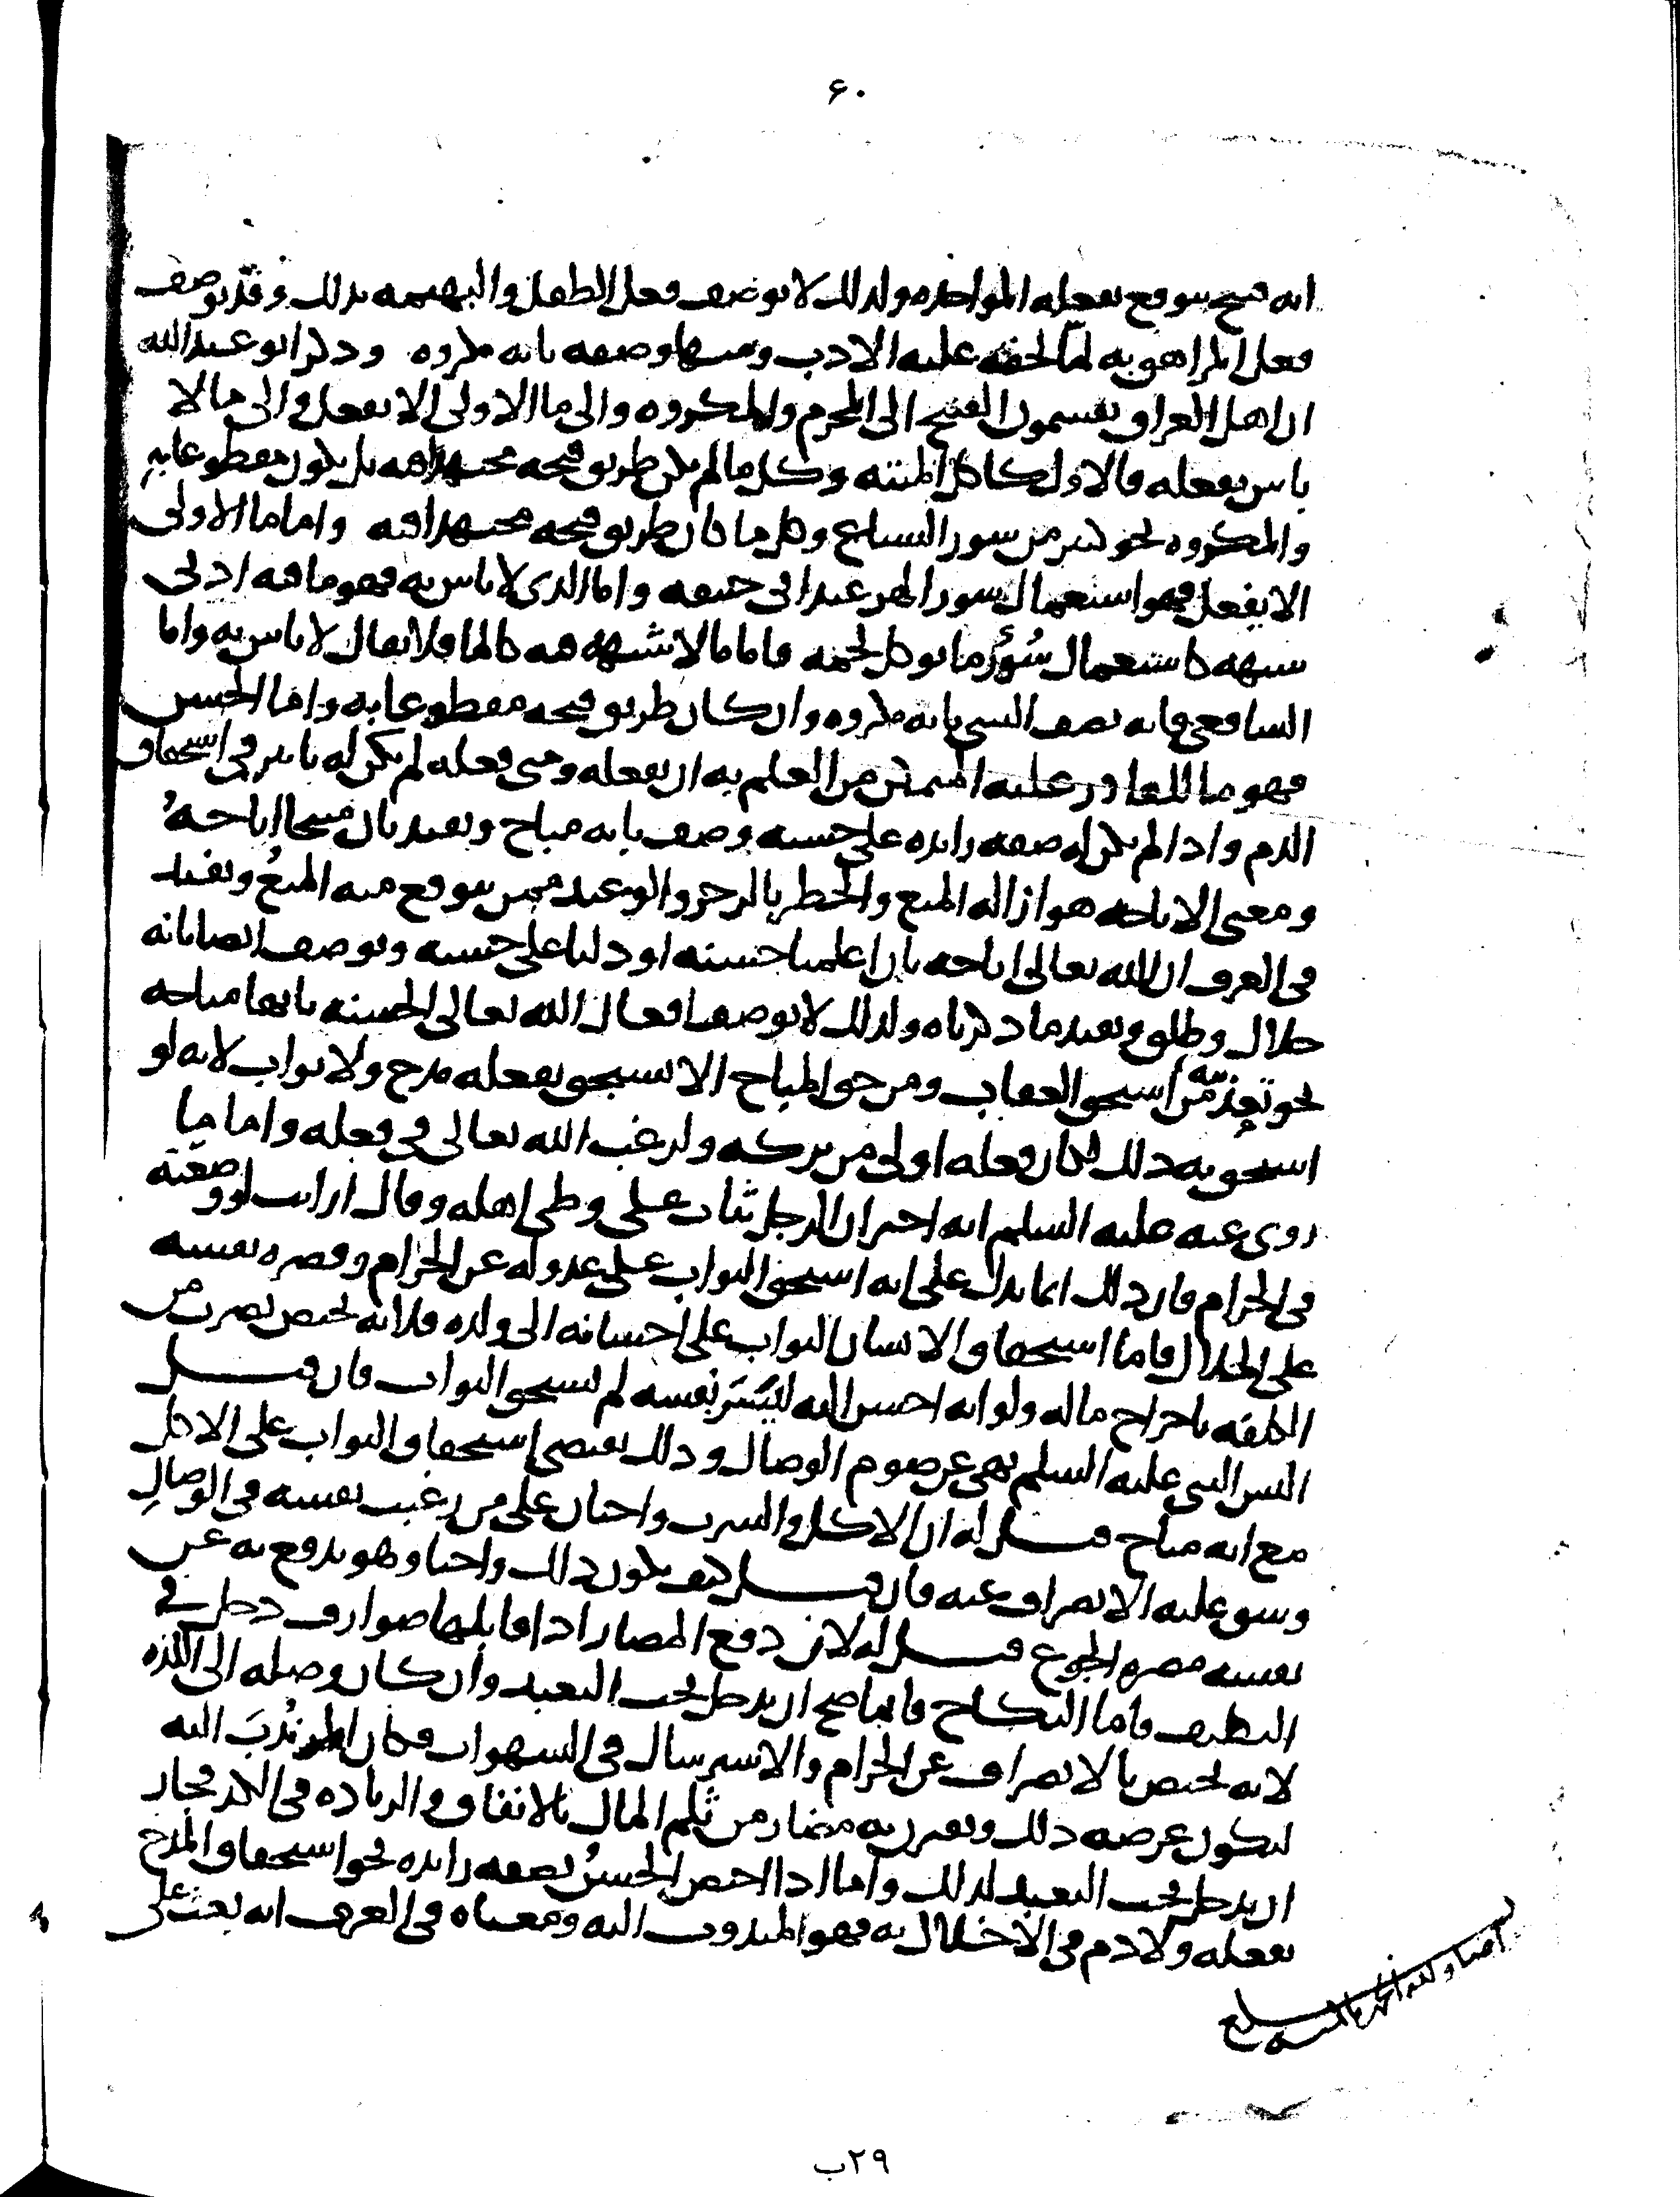 ٦٠
انه قبيح يتوقع بفعله المواخذه ولذلك لا يوصف فعل الطفل والبهيمه بذلك وقد يوصف
فعل المراهق به لما لحقه عليه الادب ومنها وصفه بانه مكروه وذكر ابو عبد الله
ان اهل العراق يقسمون القبيح الى المحرم والمكروه والى ما الاولى الا يفعل والى ما لا
باس بفعله فالاول كاكل الميتة وكل ما لم يكن طريق قبحه مجتهدا فيه بل يكون مقطوعا به
والمكروه نحو كثير من سور السباع وكل ما كان طريق قبحه مجتهدا فيه واما ما الاولى
الا يفعل فهو استعمال سور الهر عند ابي حنيفه واما الذي لا باس به فهو ما فيه ادنى
شبهه كاستعمال سُؤر ما يوكل لحمه فاما ما لا شبهة فيه كالماء فلا يقال لا باس به واما
الشافعي فانه يصف الشي بانه مكروه وان كان طريق قبحه مقطوعا به واما الحسن
فهو ما للقادر عليه المتمكن من العلم به ان يفعله ومتى فعله لم يكن له تاثير في استحقاق
الذم واذا لم يكن له صفه زايده على حسنه وصف بانه مباح ويفيد بان مبيحا اباحهُ
ومعنى الاباحه هو ازاله المنع والحظر بالزجر والوعيد ممن يتوقع منه المنعُ ويفيد
في العرف ان الله تعالى اباحه بان اعلمنا حسنه او دلنا على حسنه ويوصف ايضا بانه
حلال وطلق ويفيد ما ذكرناه ولذلك لا يوصف افعال الله تعالى الحسنه بانها مباحه
نحو تعذيبه من استحق العقاب ومن حق المباح الا يستحق بفعله مدح ولا ثواب لانه لو
استحق به ذلك لكان فعله اولى من تركه ولرغب الله تعالى في فعله واما ما
روي عنه عليه السلم انه اخبر ان الرجل يثاب على وطي اهله وقال ارايت لو وضعته
في الحرام فان ذلك انما يدل على انه استحق الثواب على عدوله عن الحرام وقصره نفسه
على الحلال فاما استحقاق الانسان الثواب على احسانه الى ولده فلانه يختص بضرب من
الكلفه باخراج ماله ولو انه احسن اليه ليَسُرّ نفسه لم يستحق الثواب فان قيل
اليس النبي عليه السلم نهى عن صوم الوصال وذلك يقتضي استحقاق الثواب على الاكل
مع انه مباح قيل له ان الاكل والشرب واجبان على من رغب نفسه في الوصال
وشق عليه الانصراف عنه فان قيل كيف يكون ذلك واجبا وهو يدفع به عن
نفسه مضره الجوع قيل له لان دفع المضار اذا قابلها صوارف دخل في
التكليف واما النكاح فانما صح ان يدخل تحت التعبد وان كان وصله الى اللذه
لانه يختص بالانصراف عن الحرام والاسترسال في الشهوات فكان المرء نُدِبَ اليه
ليكون غرضه ذلك ويقترن به مضار من ثلم المال بالانفاق والزياده في الكد فجاز
ان يدخل تحت التعبد لذلك واما اذا اختص الحسنُ بصفه زايده نحو استحقاق المدح
بفعله ولا ذم في الاخلال به فهو المندوب اليه ومعناه في العرف انه بعث على
٢٩ب